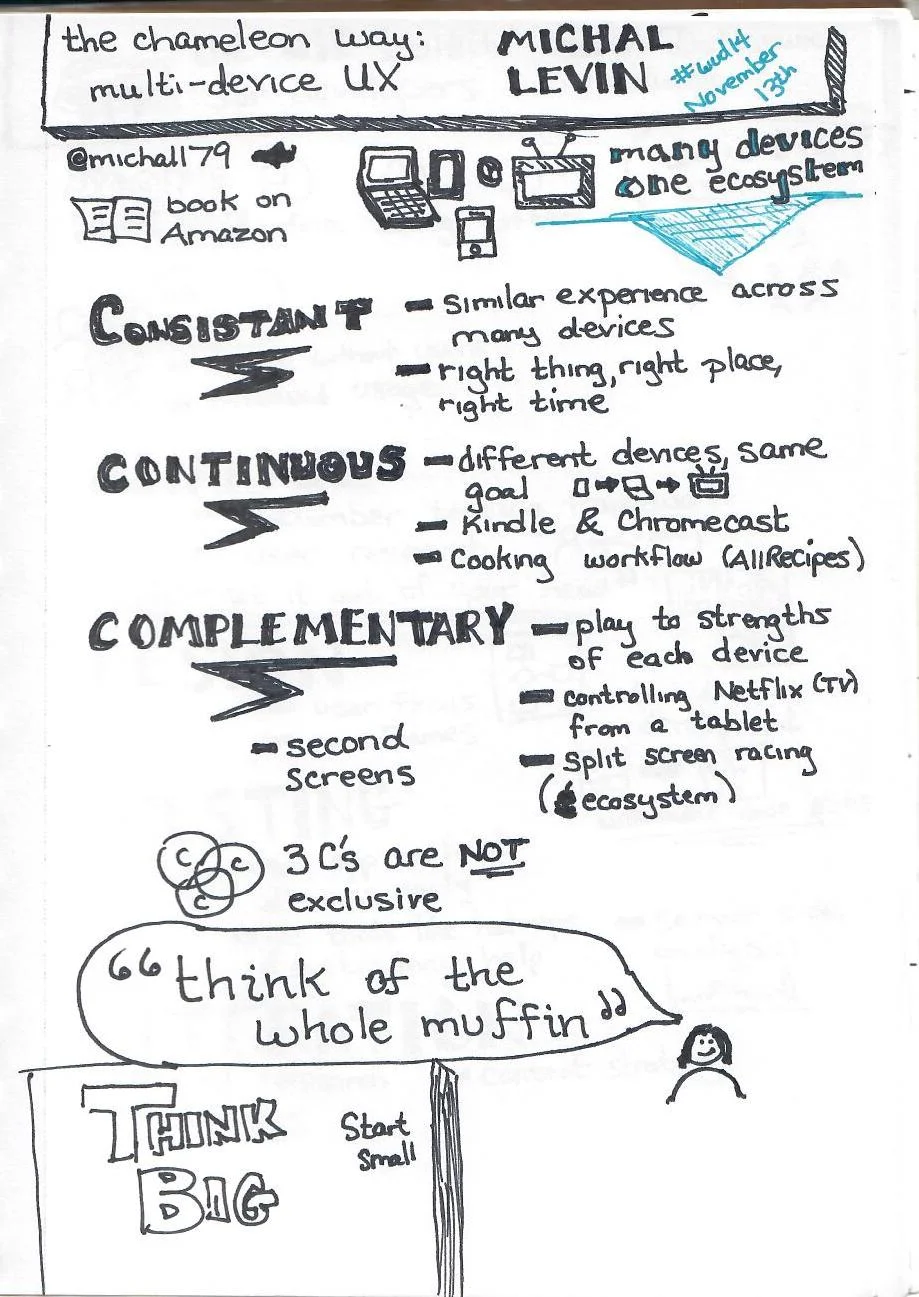 the chameleon way:
multi-device UX
MICHAL
LEVIN
#wud14
November
13th
@michall79
book on
Amazon
many devices
one ecosystem
CONSISTANT
- similar experience across
many devices
- right thing, right place,
right time
CONTINUOUS
- different devices, same
goal
- Kindle & Chromecast
- Cooking workflow (AllRecipes)
COMPLEMENTARY
- play to strengths
of each device
- controlling Netflix (TV)
from a tablet
- second
screens
- Split screen racing
(ecosystem)
C C
C
3 C's are NOT
exclusive
"think of the
whole muffin"
THINK
BIG
Start
Small